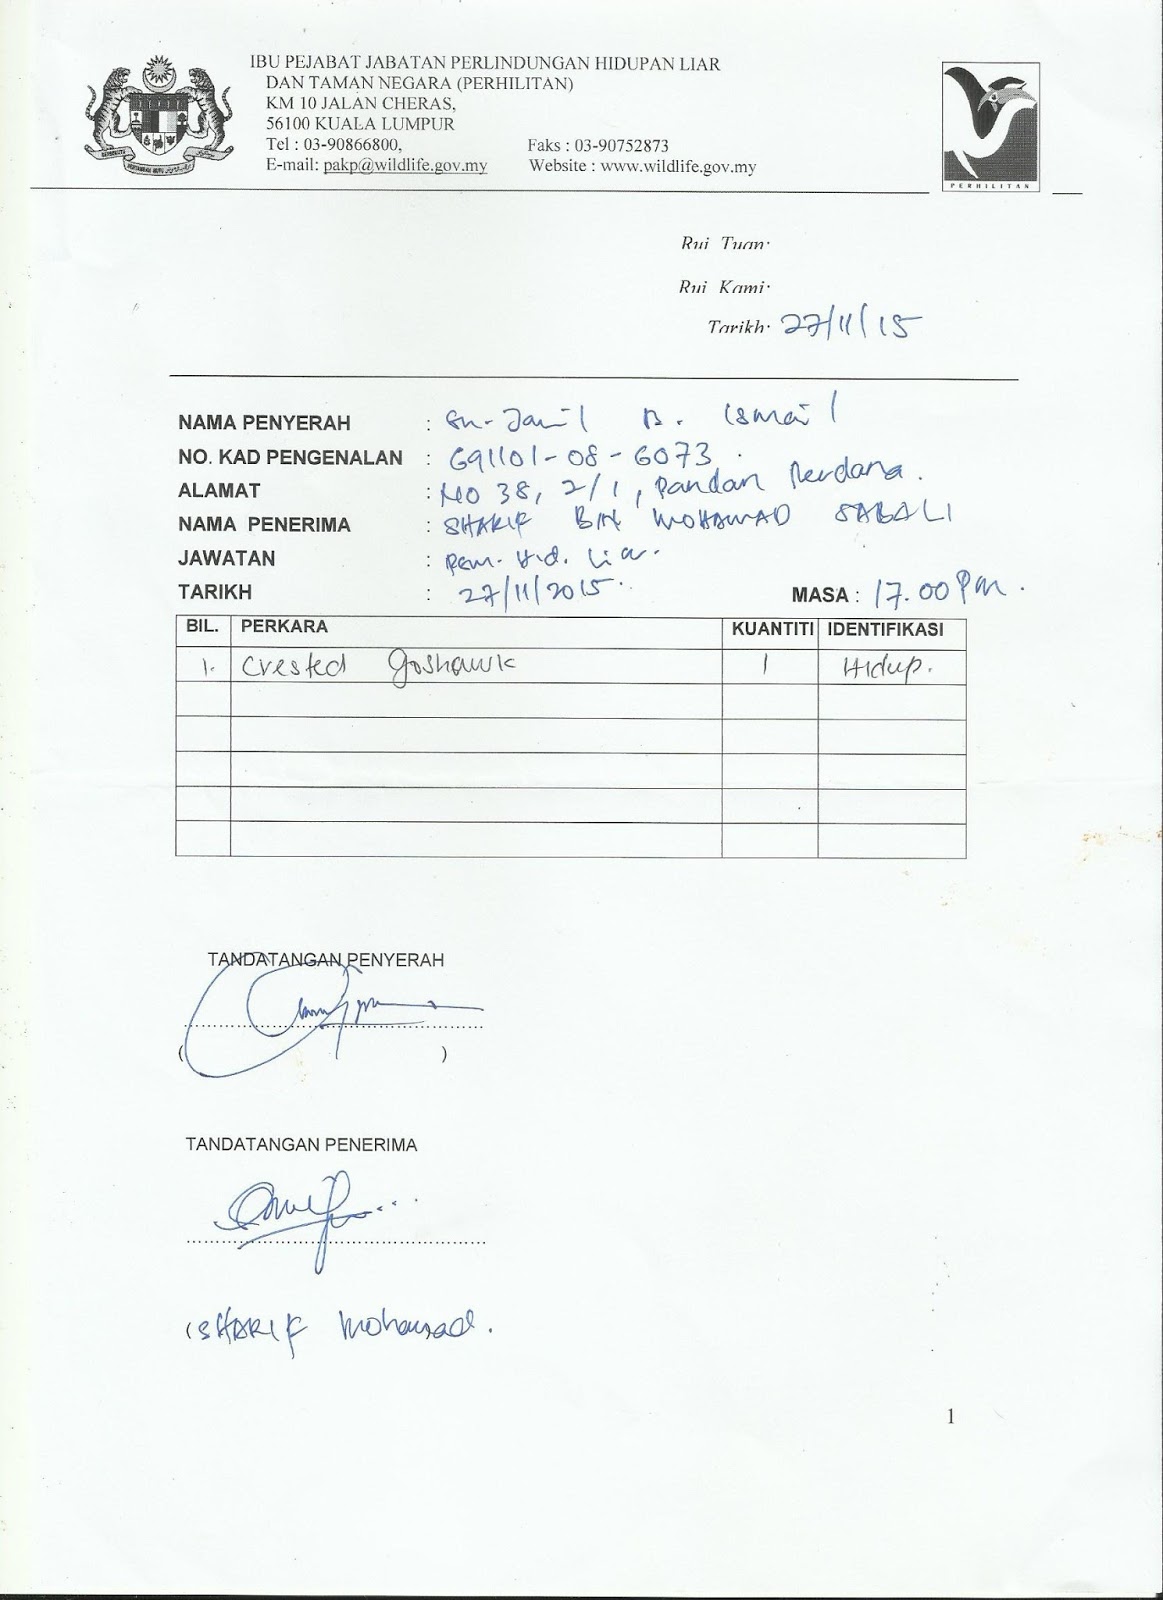 IBU PEJABAT JABATAN PERLINDUNGAN HIDUPAN LIAR
DAN TAMAN NEGARA (PERHILITAN)
KM 10 JALAN CHERAS,
56100 KUALA LUMPUR
Tel : 03-90866800, Faks : 03-90752873
E-mail: pakp@wildlife.gov.my Website : www.wildlife.gov.my
PERHILITAN
Ruj Tuan:
Ruj Kami:
Tarikh: 27/11/15
NAMA PENYERAH : Jamil B. Ismail
NO. KAD PENGENALAN : 691101-08-6073
ALAMAT : NO 38, 2/1, Pandan Perdana.
NAMA PENERIMA : SHARIF BIN MOHAMAD SABALI
JAWATAN : Pem. Hid. Liar.
TARIKH : 27/11/2015 MASA : 17.00 Pm.
BIL. PERKARA KUANTITI IDENTIFIKASI
1. Crested Goshawk 1 Hidup.
TANDATANGAN PENYERAH
( )
TANDATANGAN PENERIMA
(SHARIF Mohamad.
1